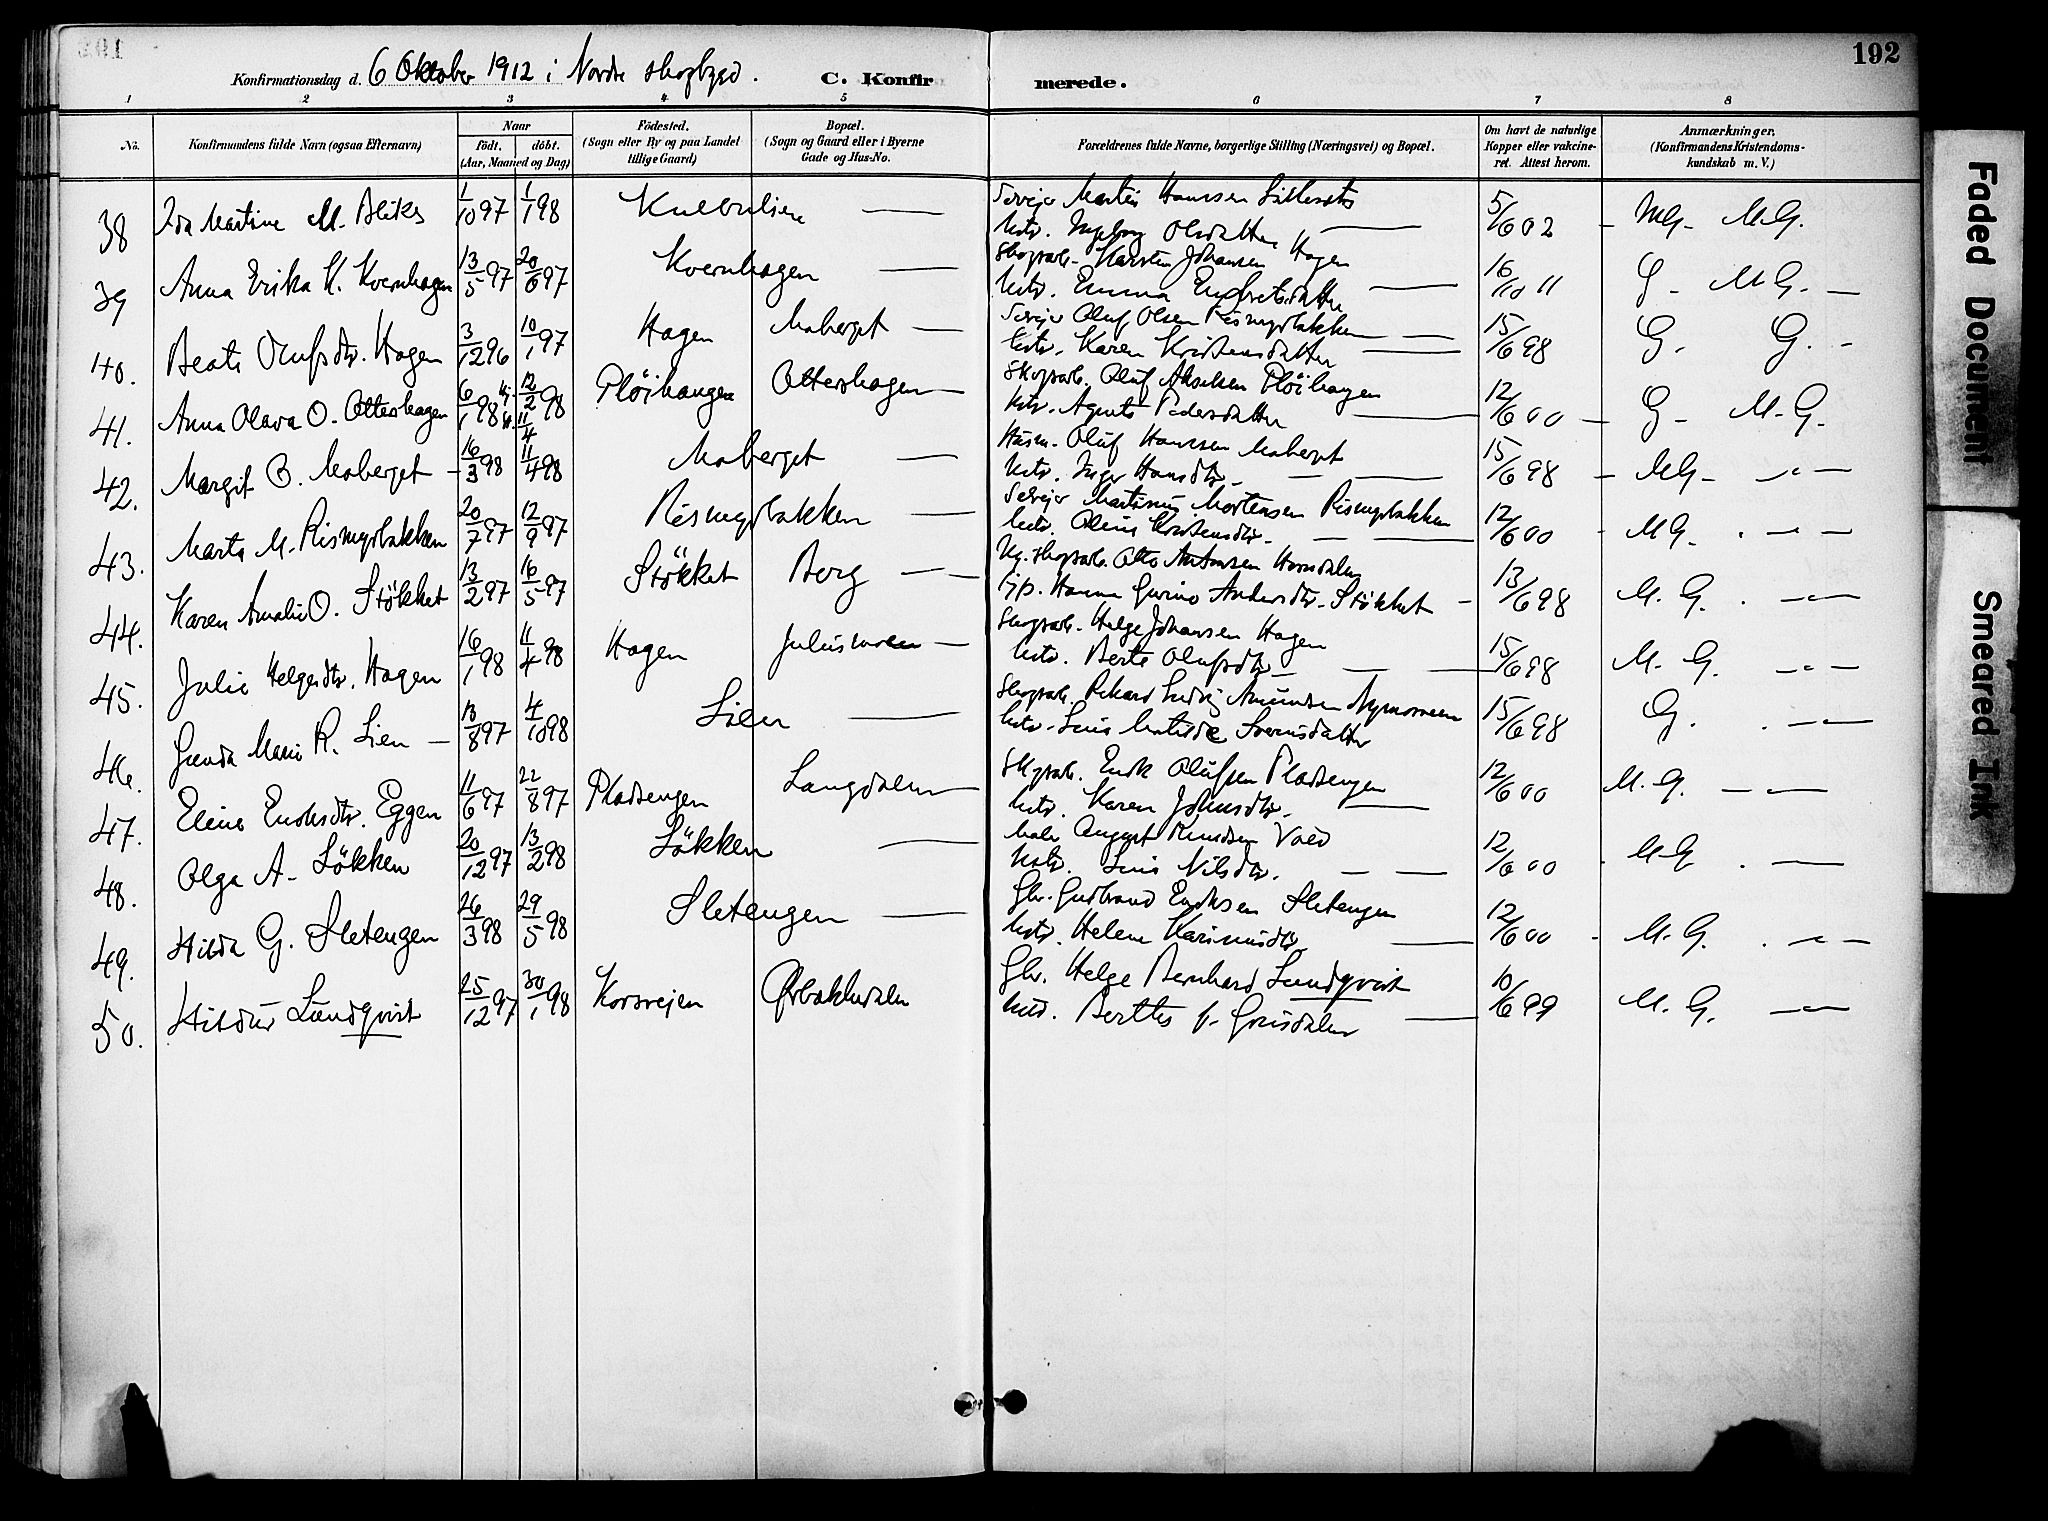 192
Konfirmationsdag d. 6 Oktober 1912 i Nordre skogbygd. C. Konfirmerede.
1 2 3 4 5 6 7 8
No. Konfirmandens fulde Navn (ogsaa Efternavn) Naar födt. döbt. (Aar, Maaned og Dag) Födested. (Sogn eller By og paa Landet tillige Gaard) Bopæl. (Sogn og Gaard eller i Byerne Gade og Hus-No. Forældrenes fulde Navne, borgerlige Stilling (Næringsvei) og Bopæl. Om havt de naturlige Kopper eller vakcineret. Attest herom. Anmærkninger. (Konfirmandens Kristendomskundskab m. V.)
38 Ida Martine M. 1/10 97 1/1 98 — Martin Hanssen
Ingeborg Olsdatter — 5/6 02 – MG – M.G.
39 Anna Erika K. Kvernhagen 13/5 97 20/6 97 Kvernhagen — Skogsarb. Karsten Johansen Hagen
Hstr. Emma — 16/10 11 G – M.G. —
40. Beate Olufsdtr. Hagen 3/12 96 10/1 97 Hagen Moberget — Oluf Olsen Rismyrbakken —
Hstr. Karen Kristensdatter — 15/6 98 G. G. –
41. Anna Olava O. Ottershagen 6/1 98 12/2 98 11/4 Plöihaugen Ottershagen — Skogsarb. Oluf Akselsen Plöihaugen
Hstr. Agnete Pedersdatter — 12/6 00 — G – M.G.
42. Margit O. Moberget – 16/3 98 11/4 98 Moberget — Husm. Oluf Hanssen Moberget
Hstr. Inger Hansdtr. — — 15/6 98 – MG – —„—
43. Marta M. Rismyrbakken 20/7 97 12/9 97 Rismyrbakken — Selvejer Martinus Mortensen Rismyrbakken
Hstr. Oline Kristensdtr. — — 12/6 00 - MG. . – —
44. Karen Amalie O. Stökket 13/2 97 16/5 97 Stökket Berg — – Ug. skogsarb. Otto Antonsen Horndalen
pp. Hanna Gurine Andersdtr. Stökket – 13/6 98 M. G. . —„—
45. Julie Helgesdtr. Hagen 16/1 98 11/4 98 Hagen Juliusmoen — Skogsarb. Helge Johansen Hagen
Hstr. Berte Olufsdtr. — — 15/6 98 M. G. —„—
46. Gunda Marie R. Lien — 13/8 97 4/10 98 Lien — Skogsarb. Rikard Ludvig Amundsen Nymoveien
Hstr. Lina Matilde Svensdatter 15/6 98 G. . —„—
47. Eline Eriksdtr. Eggen 11/6 97 22/8 97 Pladsengen Langdalen Skogsarb. Erik Olufsen Pladsengen
Hstr. Karen Johnsdtr. — 12/6 00 M. G. — —
48. Olga A. Lökken 20/12 97 13/2 98 Lökken — Maler August Knudsen Vold
Hstr. Lina Nilsdtr. — — 12/6 00 . MG . —
49. Hilda G. Sletengen 26/3 98 29/5 98 Sletengen — Gbr. Gudbrand Eriksen Sletengen
Hstr. Helene Karinusdtr. — 12/6 00 . M. G. . —„—
50. Hildur Lundqvist 25/12 97 30/1 98 Korsvejen Ørbakkedalen Gbr. Helge Bernhard Lundqvist
Hstr. Berthe f. Grusdalen — 10/6 99 M. G. —„—
Faded Document
Smeared Ink